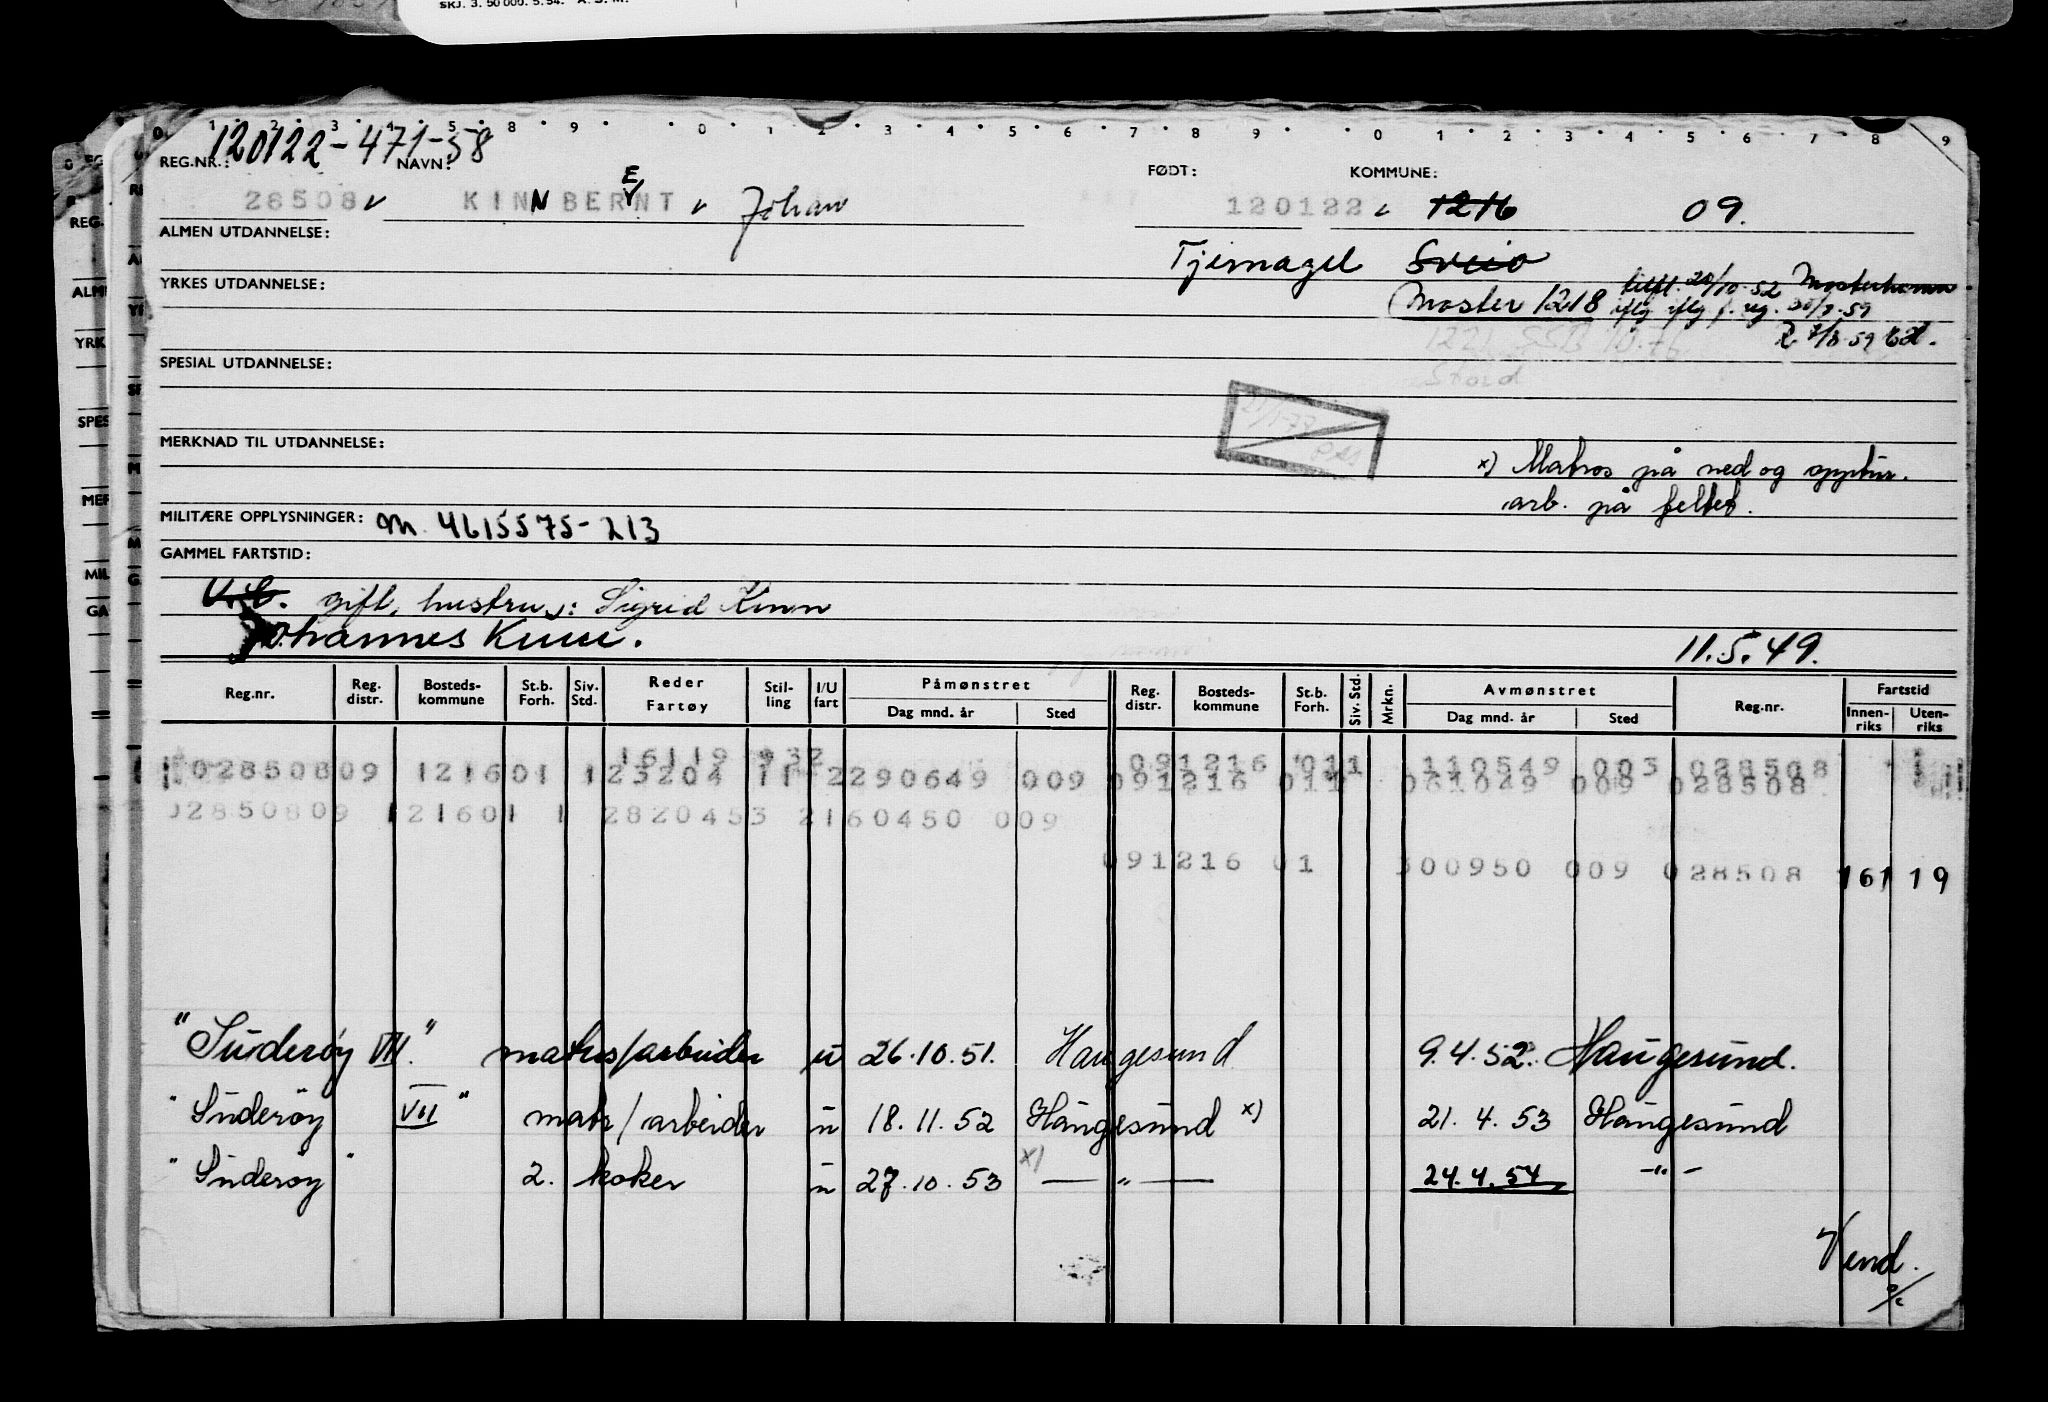 SKJ. 3. 50 000. 5. 54. A. S. M.
120122-471-58
REG.NR.: NAVN: FØDT: KOMMUNE:
28508 KINN BERNT Johan 120122 1216 09.
ALMEN UTDANNELSE:
Tjernagel Sveio
YRKES UTDANNELSE:
Moster 1218 20/10.52 Mosterhamn
iflg f. reg. 30/7.59
1221 SSB 10.76
Stord
SPESIAL UTDANNELSE:
MERKNAD TIL UTDANNELSE:
x) Matros på ned og opptur.
arb. på feltet.
MILITÆRE OPPLYSNINGER: M. 4615575-213
GAMMEL FARTSTID:
gift, hustru: Sigrid Kinn
Johannes Kinn. 11.5.49.
Reg.nr. Reg. distr. Bosteds-kommune St.b. Forh. Siv. Std. Reder Fartøy Stil-ling I/U fart Påmønstret Dag mnd. år Sted Reg. distr. Bosteds-kommune St.b. Forh. Siv. Std. Mrkn. Avmønstret Dag mnd. år Sted Reg.nr. Fartstid Innen-riks Uten-riks
16119 932 091216 011 110549 003 028508
02850809 121601 1 23204 11 2290649 009 091216 011 061049 009 028508
02850809 121601 1 2820453 2160450 009
091216 01 300950 009 028508 161 19
"Suderøy VIII." matros/arbeider u 26.10.51. Haugesund 9.4.52. Haugesund.
"Suderøy VII" matr/arbeider u 18.11.52 Haugesund x) 21.4.53 Haugesund
"Suderøy" 2. koker u 27.10.53 x) — " — 24.4.54 — " —
Vend.